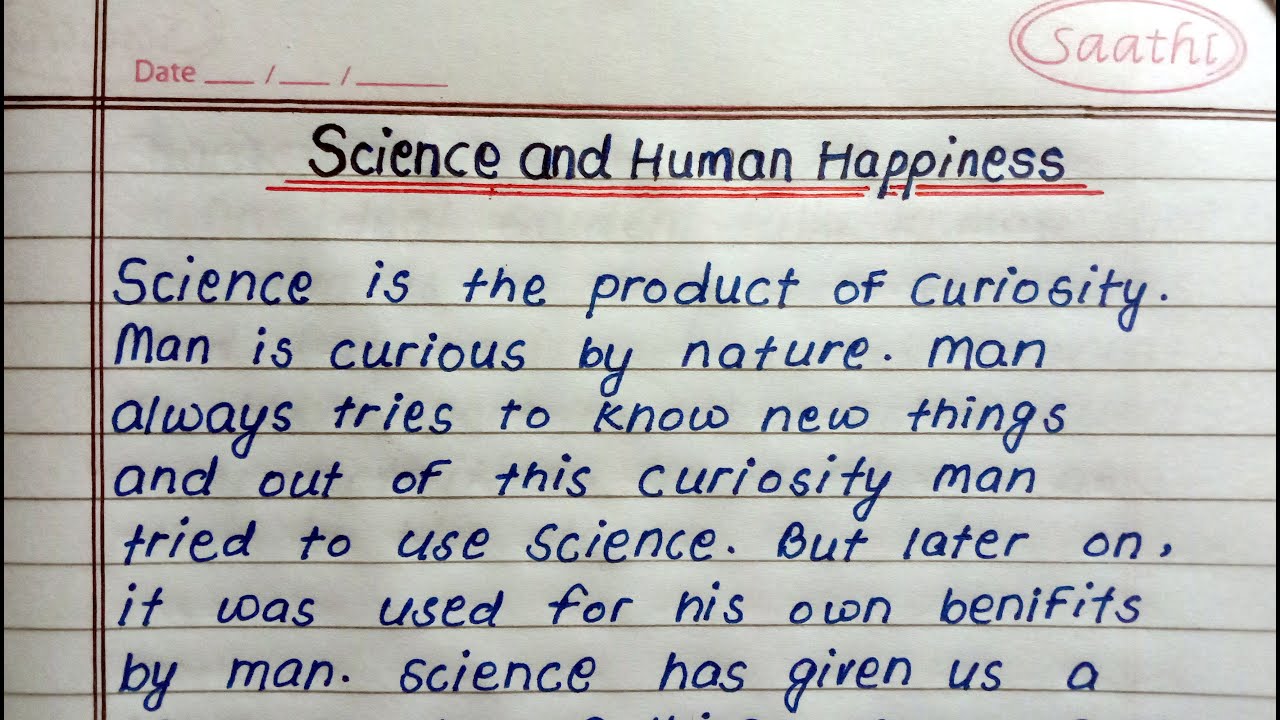 Saathi
Date ___ / ___ / _____
Science and Human Happiness
Science is the product of curiosity.
Man is curious by nature. Man
always tries to know new things
and out of this curiosity man
tried to use science. But later on,
it was used for his own benifits
by man. science has given us a